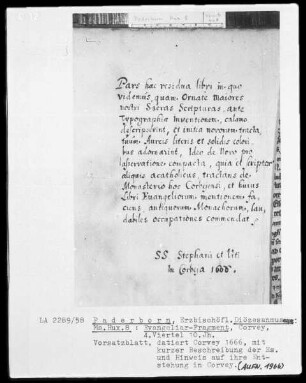 Pars hæc residua libri in quo
videmus, quam Ornate maiores
nostri Sacras Scripturas, ante
Typographiæ Inventionem, calamo
descripserint, et initia novorum tracta,
tuum Aureis literis et solidis colori,
bus adornarint, Ideo de Novo pro
conservatione compacta, quia et scriptor
aliquis acatholicus, tractans de
Monasterio hoc Corbejensi, et huius
Libri Evangeliorum mentionem fa,
ciens antiquorum Monachorum, lau,
dabiles occupationes commendat.
SS Stephani et Viti
In Corbeja 1666.
LA 2289/38 Paderborn, Erzbischöfl. Diözesanmuseum
Ms.Hux.8 : Evangeliar-Fragment, Corvey,
4.Viertel 10.Jh.
Vorsatzblatt, datiert Corvey 1666, mit
kurzer Beschreibung der Hs.
und Hinweis auf ihre Ent-
stehung in Corvey. (AUFN. 1966)